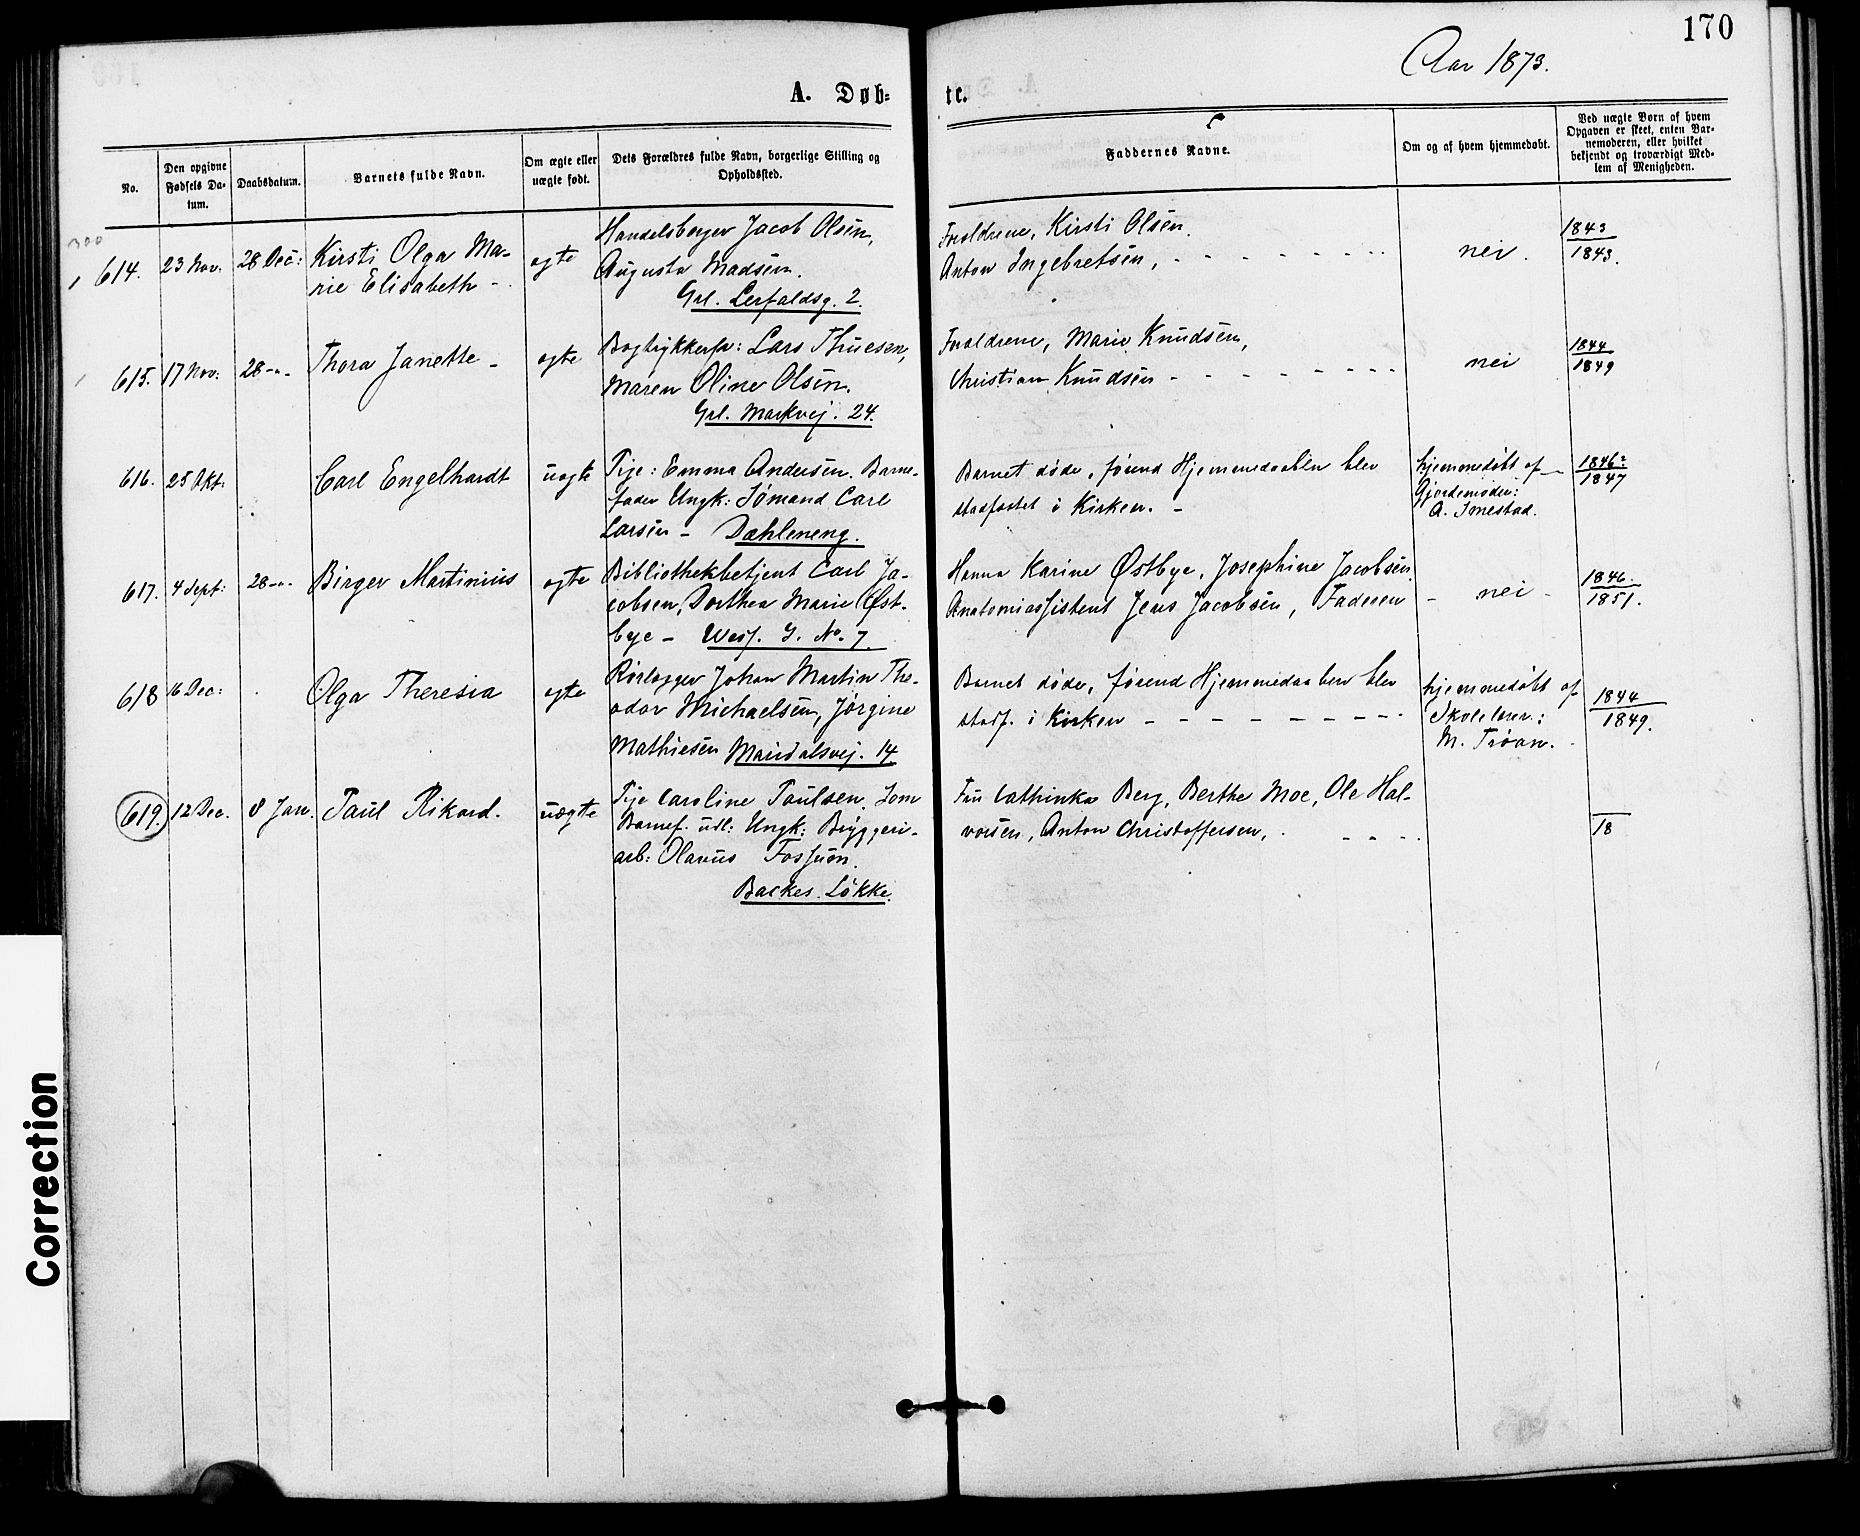 170
Aar 1873.
A. Døb-
te.
No.
Den opgivne Fødsels Da-
tum.
Daabsdatum.
Barnets fulde Navn.
Om ægte eller
uægte født.
Dets Forældres fulde Navn, borgerlige Stilling og
Opholdssted.
Faddernes Navne.
Om og af hvem hjemmedøbt.
Ved uægte Børn af hvem
Opgaven er skeet, enten Bar-
nemoderen, eller hvilket
bekjendt og troværdigt Med-
lem af Menigheden.
300
614. 23 Nov. 28 Dec: Kirsti Olga Ma-
rie Elisabeth -
ægte
Handelsborger Jacob Olsen,
Augusta Madsen.
Grl. Lerfaldsg. 2.
Forældrene, Kirsti Olsen.
Anton Ingebretsen,
nei.
1843
1843.
615. 17 Nov: 28 -"- Thora Janette -
ægte
Bogtrykkersv: Lars Thuesen,
Maren Oline Olsen.
Grl. Markvej. 24.
Forældrene, Marie Knudsen,
Christian Knudsen -
nei
1844
1849
616. 25 Okt: Carl Engelhardt
uægte
Pige: Emma Andersen. Barne-
fader Ungk: Sømand Carl
Larsen - Dæhleneng.
Barnet døde, førend Hjemmedaaben blev
stadfæstet i Kirken. -
hjemmedøbt af
Gjordemoder:
A. Smestad.
1846:
1847
617. 4 Sept: 28 -"- Birger Martinius
ægte
Bibliothekbetjent Carl Ja-
cobsen, Dorthea Marie Øst-
bye - Wesf. G. No. 7.
Hanna Karine Østbye, Josephine Jacobsen
Anatomiassistent Jens Jacobsen, Faderen
- nei -
1846.
1851.
618 16 Dec: Olga Theresia
ægte
Rørlægger Johan Martin The-
odor Michaelsen, Jørgine
Mathiesen Maridalsvej. 14.
Barnet døde, førend Hjemmedaaben blev
stadf. i Kirken
hjemmedøbt af
Skolelærer:
M. Trøan.
1844
1849.
619. 12 Dec. 8 Jan. Paul Rikard.
uægte
Pige Caroline Paulsen. Som
Barnef. udl: Ungk: Bryggeri-
arb: Olavus Fossum.
Backes. Løkke.
Fru Cathinka Berg, Berthe Moe, Ole Hal-
vorsen, Anton Christoffersen,
18
Correction